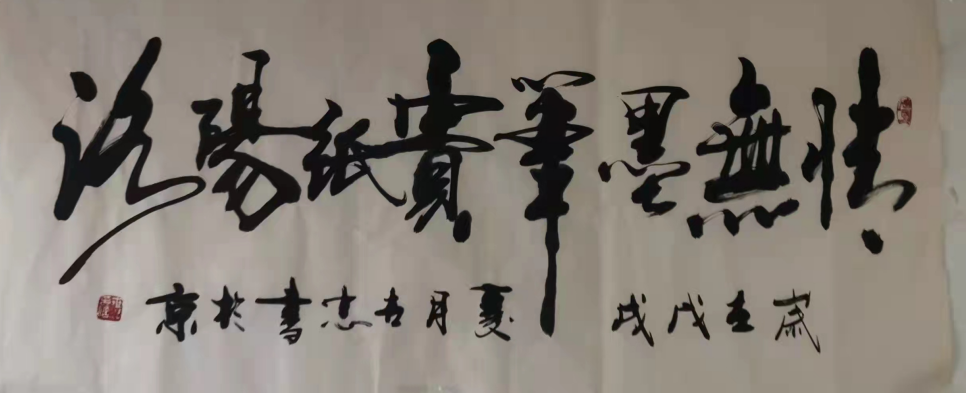 洛陽紙貴筆墨無情
歲在戊戌夏月忠書於京